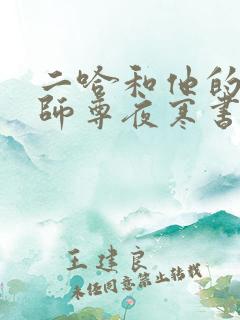 二哈和他的
師尊夜寒書
王建良
未任同意禁止转载